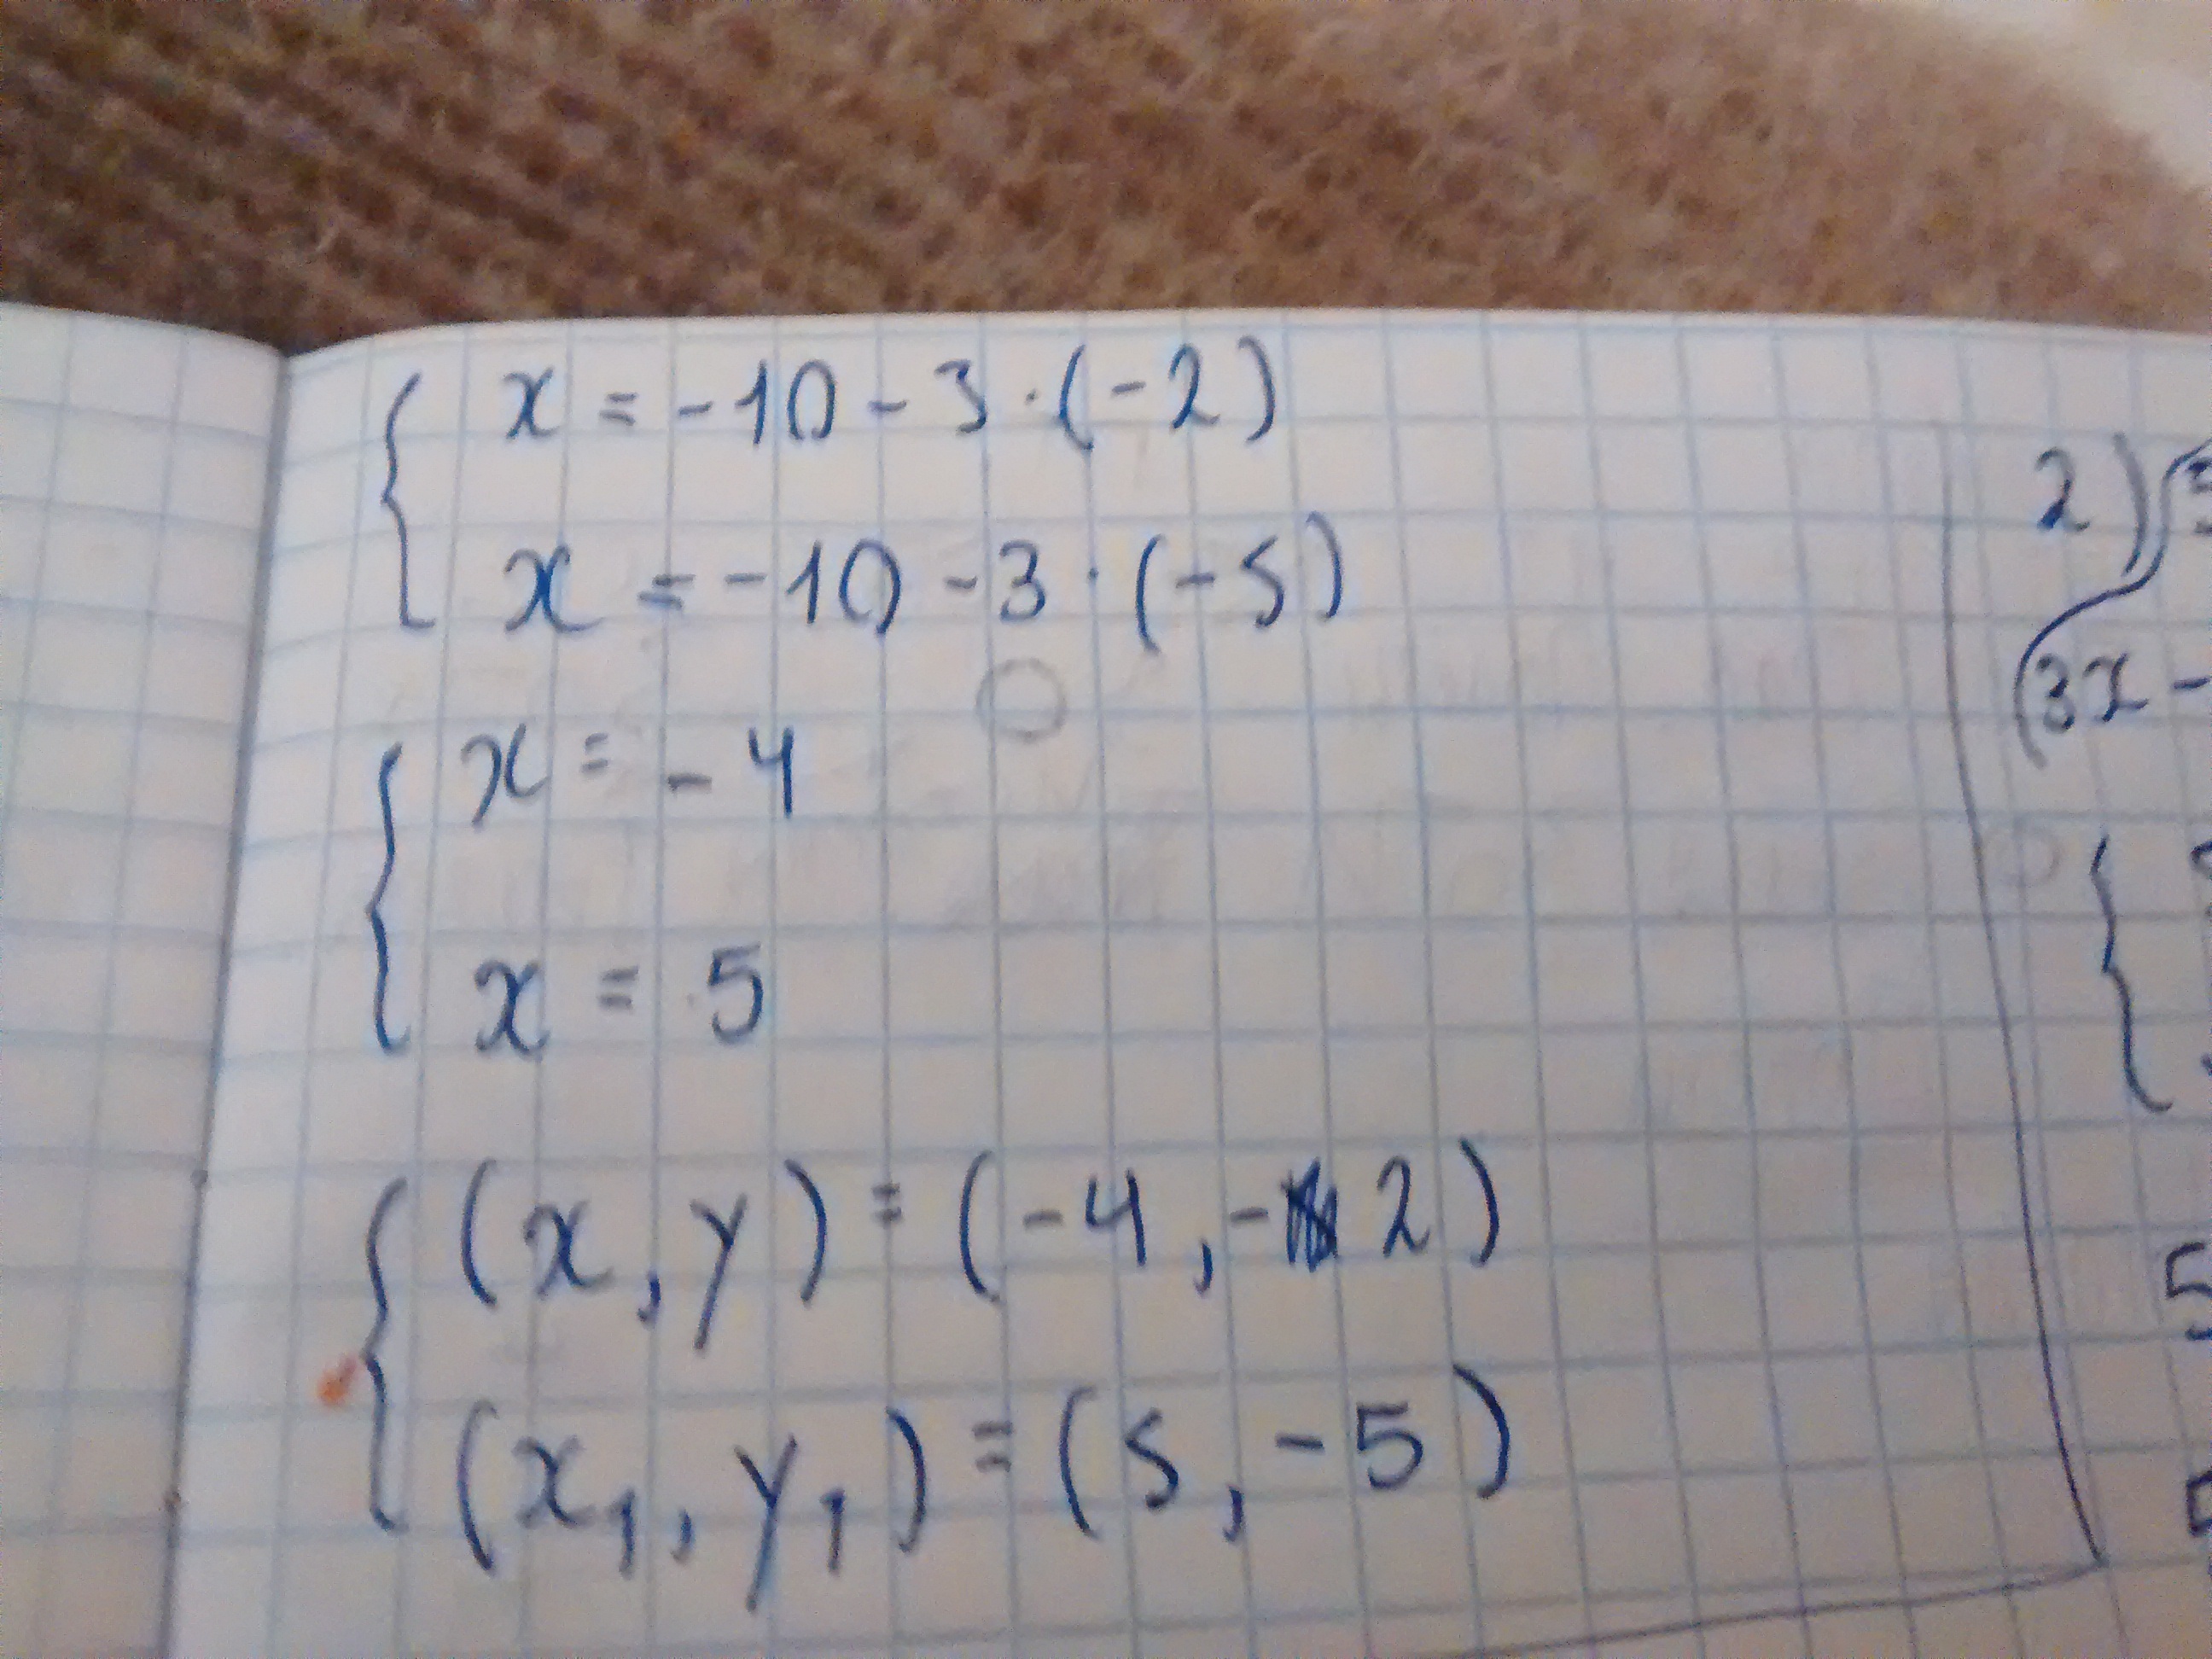 x = -10 - 3 · (-2)
x = -10 - 3 · (-5)
x = - 4
x = 5
(x, y) = (-4, - 2)
(x₁, y₁) = (5, -5)
2)
(3x -
5